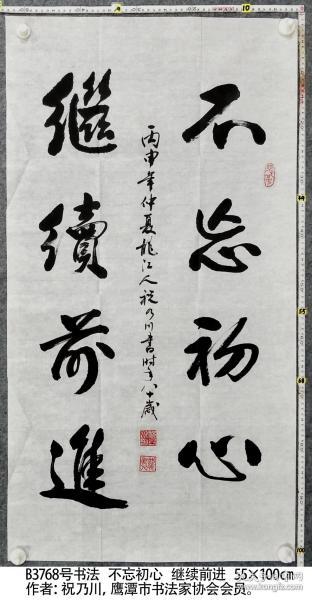 不忘初心
繼續前進
丙申年仲夏龍江人祝乃川書时年八十歲
B3768号书法 不忘初心 继续前进 55×100cm
作者: 祝乃川, 鹰潭市书法家协会会员。